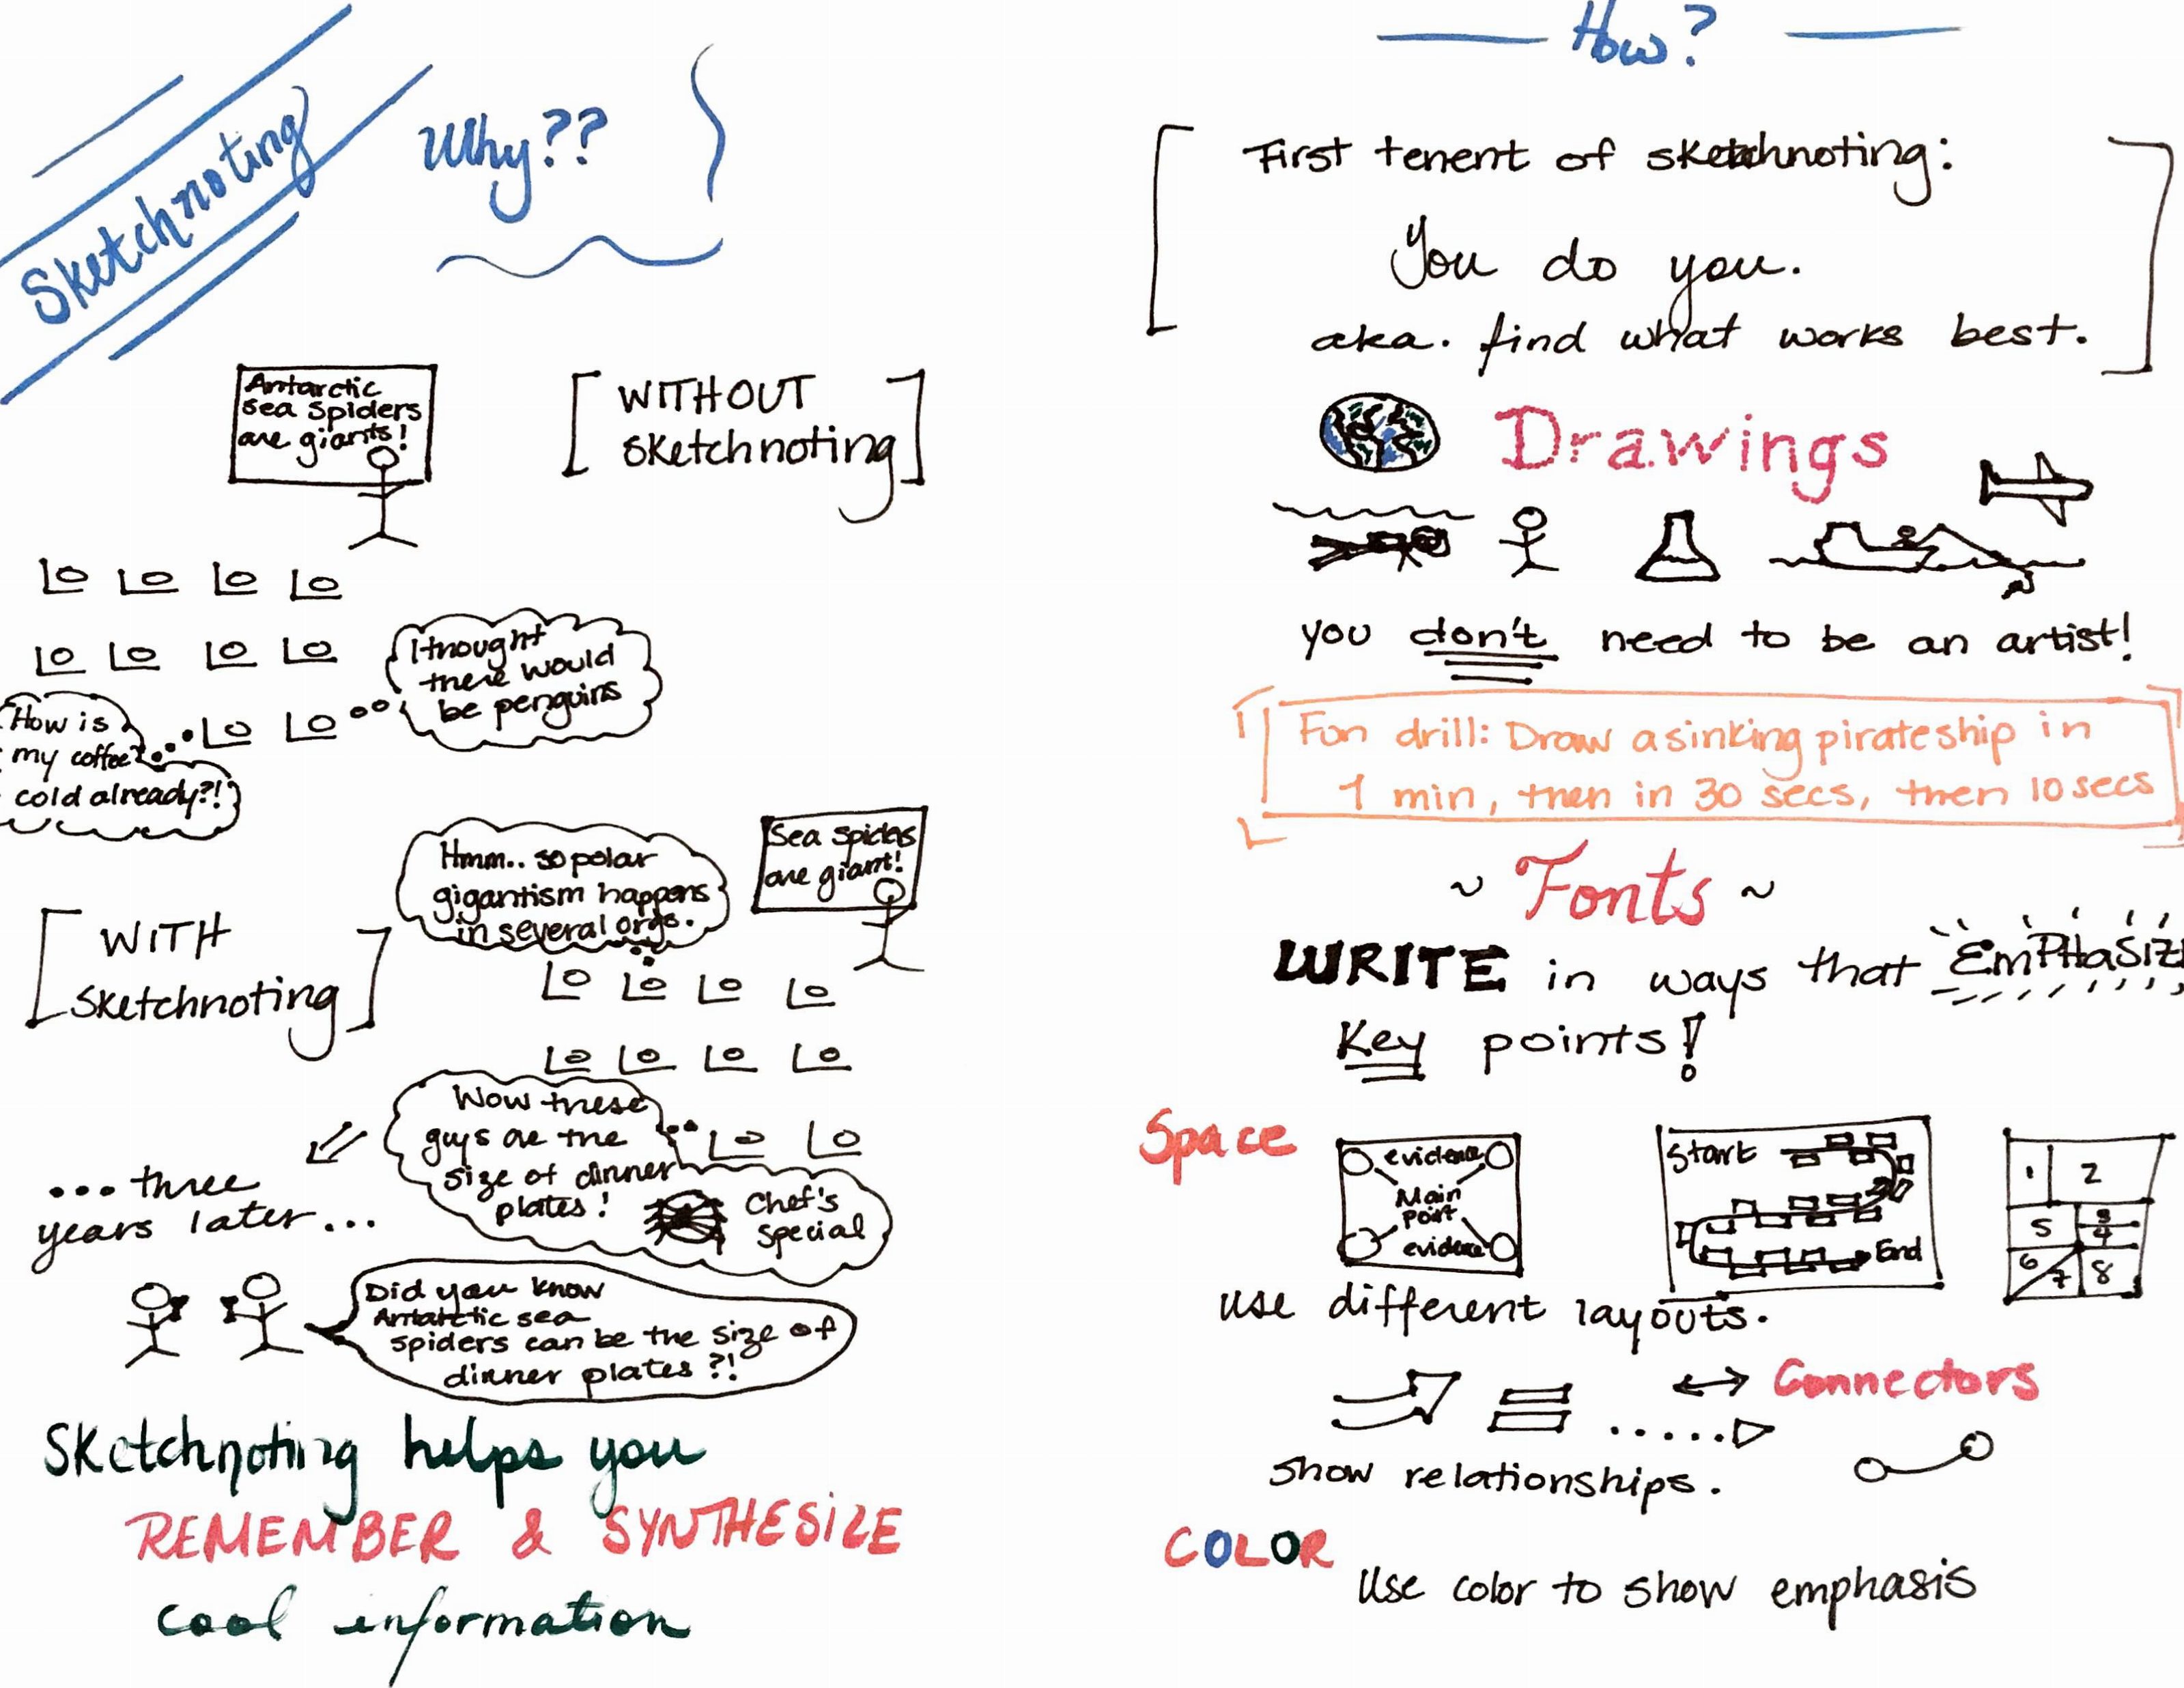 Sketchnoting
Why??
Antarctic
sea spiders
are giants!
[WITHOUT
sketchnoting]
I thought
there would
be penguins
How is
my coffee
cold already?!
Hmm.. so polar
gigantism happens
in several orgs.
Sea spiders
are giant!
[WITH
sketchnoting]
Wow these
guys are the
size of dinner
plates!
Chef's
special
...three
years later...
Did you know
Antarctic sea
spiders can be the size of
dinner plates?!
Sketchnoting helps you
REMEMBER & SYNTHESIZE
cool information
How?
First tenent of sketchnoting:
You do you.
aka. find what works best.
Drawings
you don't need to be an artist!
Fun drill: Draw a sinking pirateship in
1 min, then in 30 secs, then 10 secs
~ Fonts ~
WRITE in ways that EMPHASIZ
Key points!
Space
evidence
Main
point
evidence
Start
End
1 2
5 3
4
6 7 8
use different layouts.
Connectors
show relationships.
COLOR
Use color to show emphasis